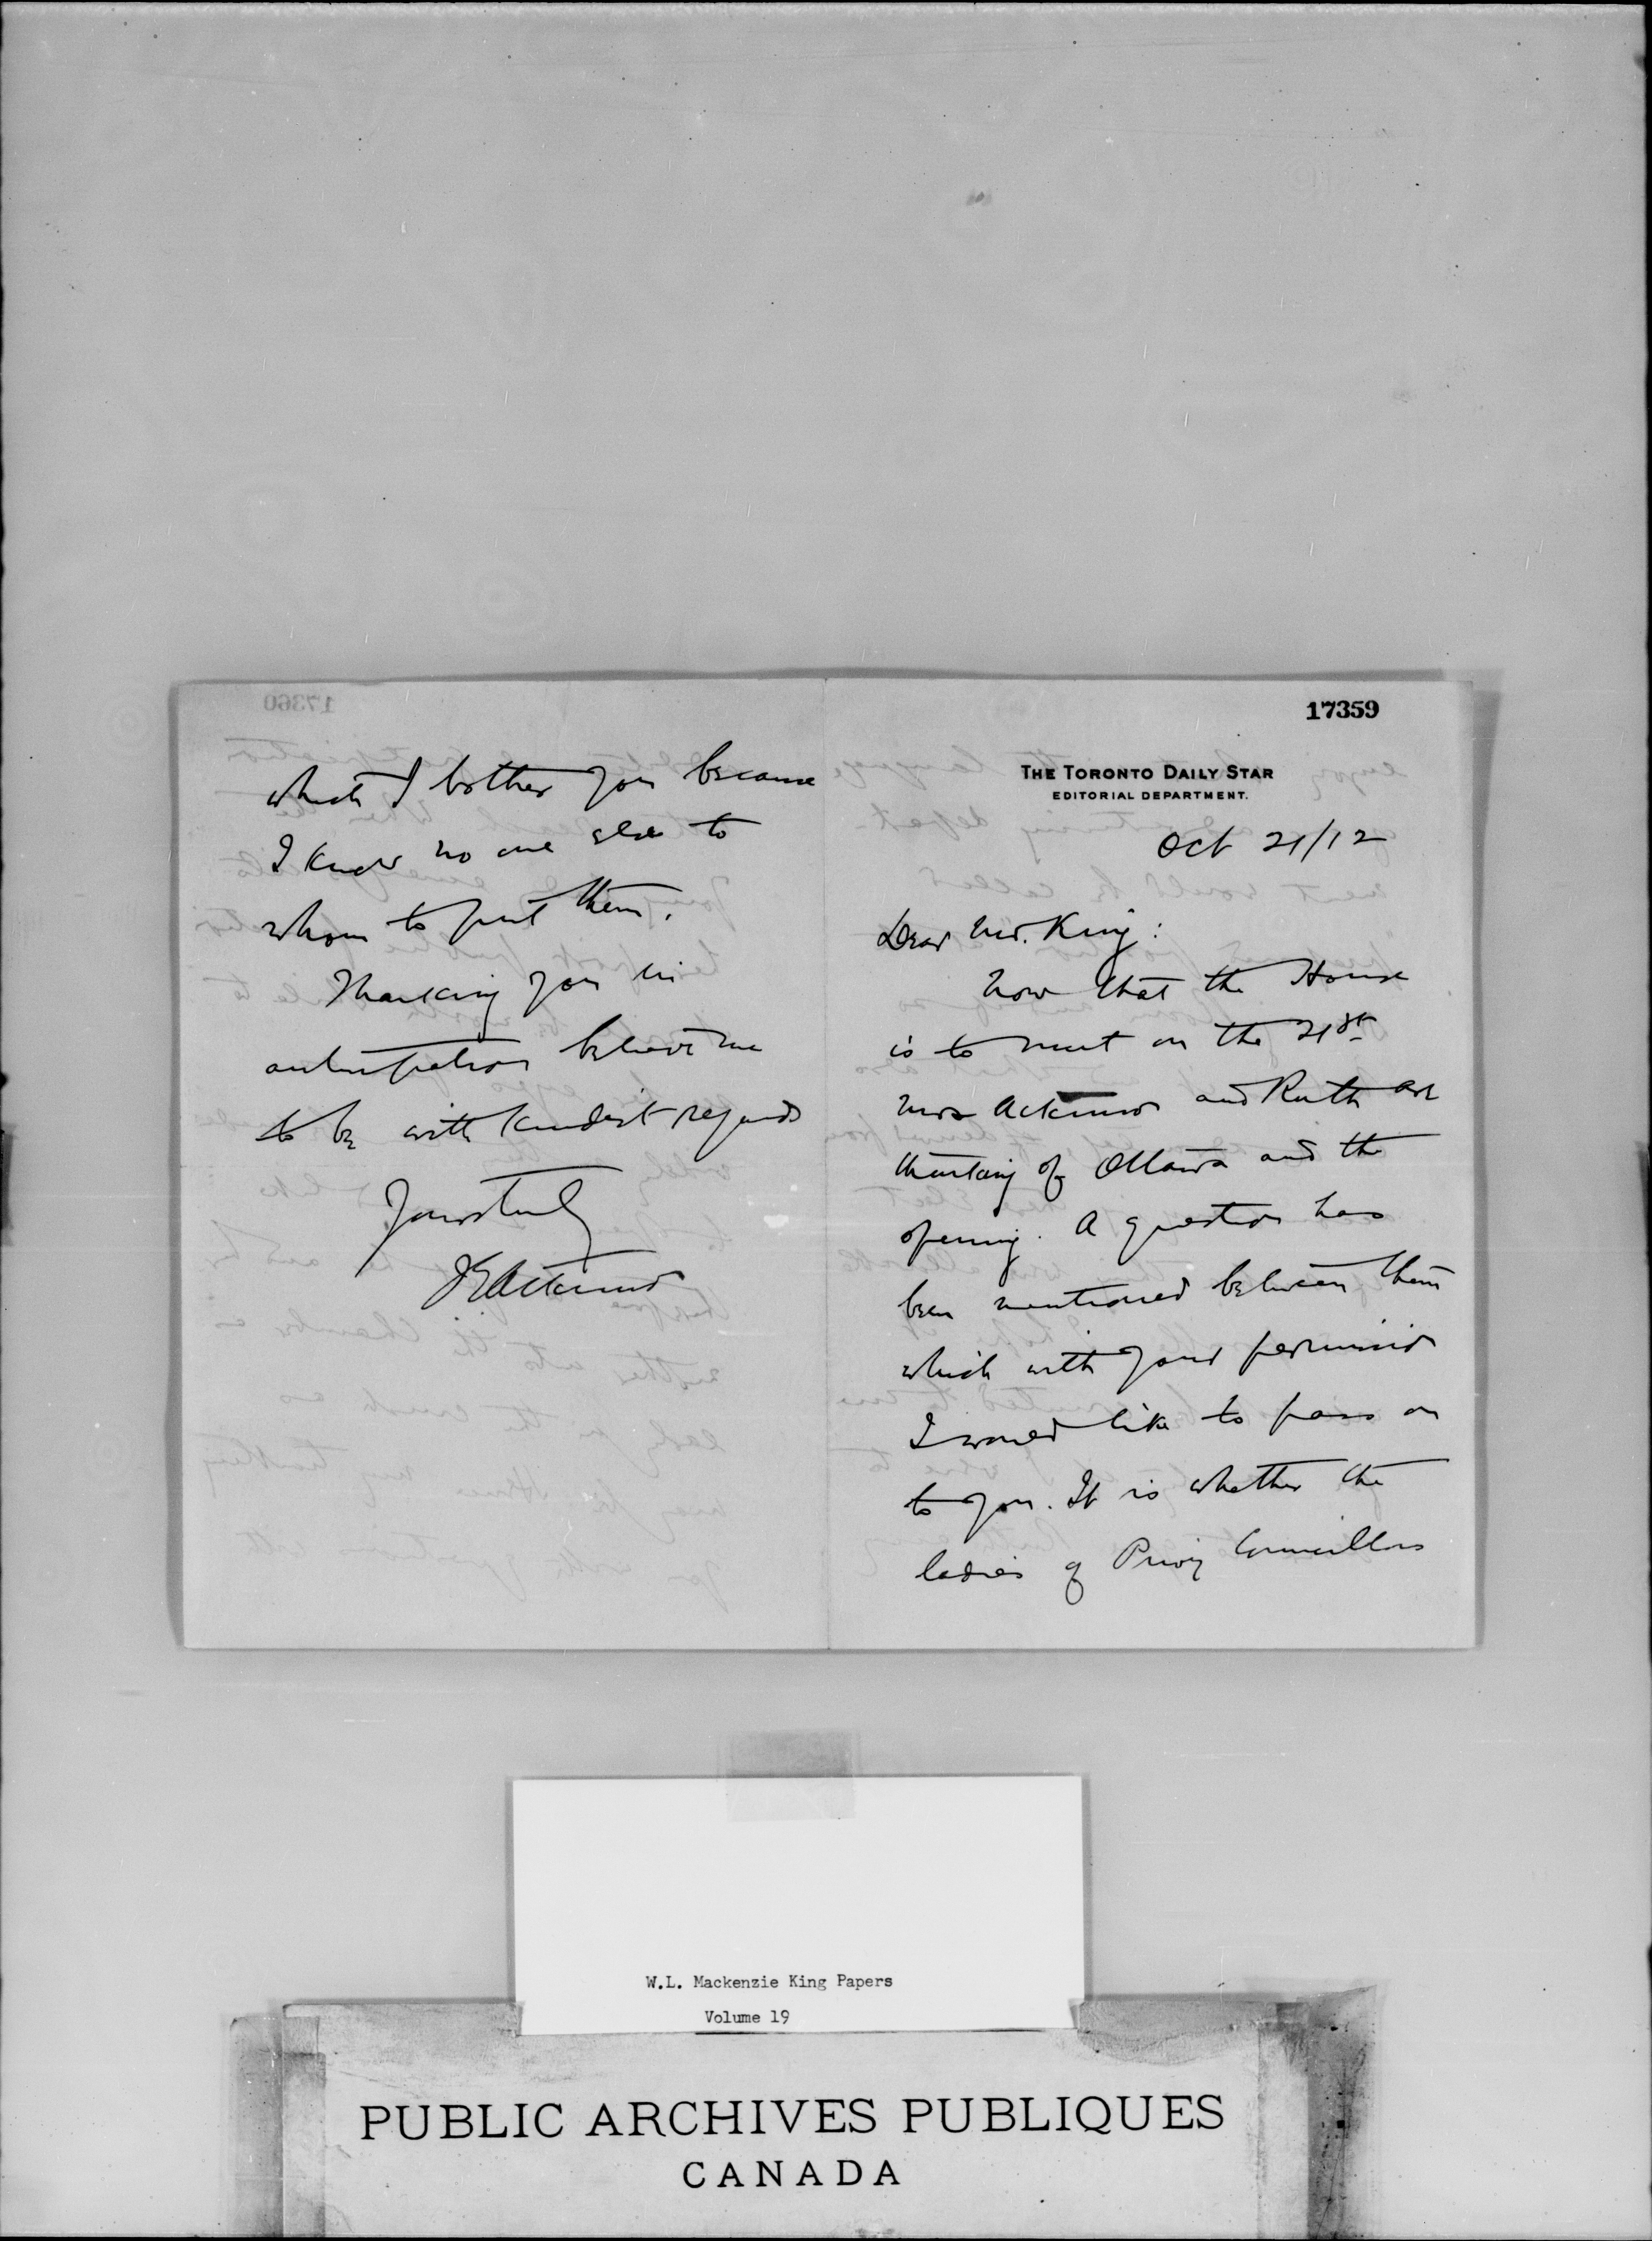 17359
THE TORONTO DAILY STAR
EDITORIAL DEPARTMENT.
Oct 21/12
Dear Mr. King:
Now that the House
is to meet on the 21st
Mrs Atkinson and Ruth are
thinking of Ottawa and the
opening. A question has
been mentioned between them
which with your permission
I would like to pass on
to you. It is whether the
ladies of Privy Councillors
which I bother you because
I know no one else to
whom to put them.
Thanking you in
anticipation believe me
to be with kindest regards
Yours truly
J E Atkinson
17360
W.L. Mackenzie King Papers
Volume 19
PUBLIC ARCHIVES PUBLIQUES
CANADA